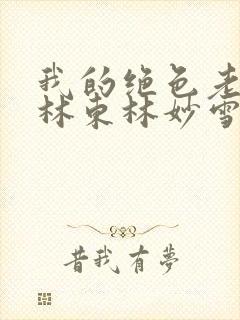 我的绝色老
林东林妙雪
昔我有夢